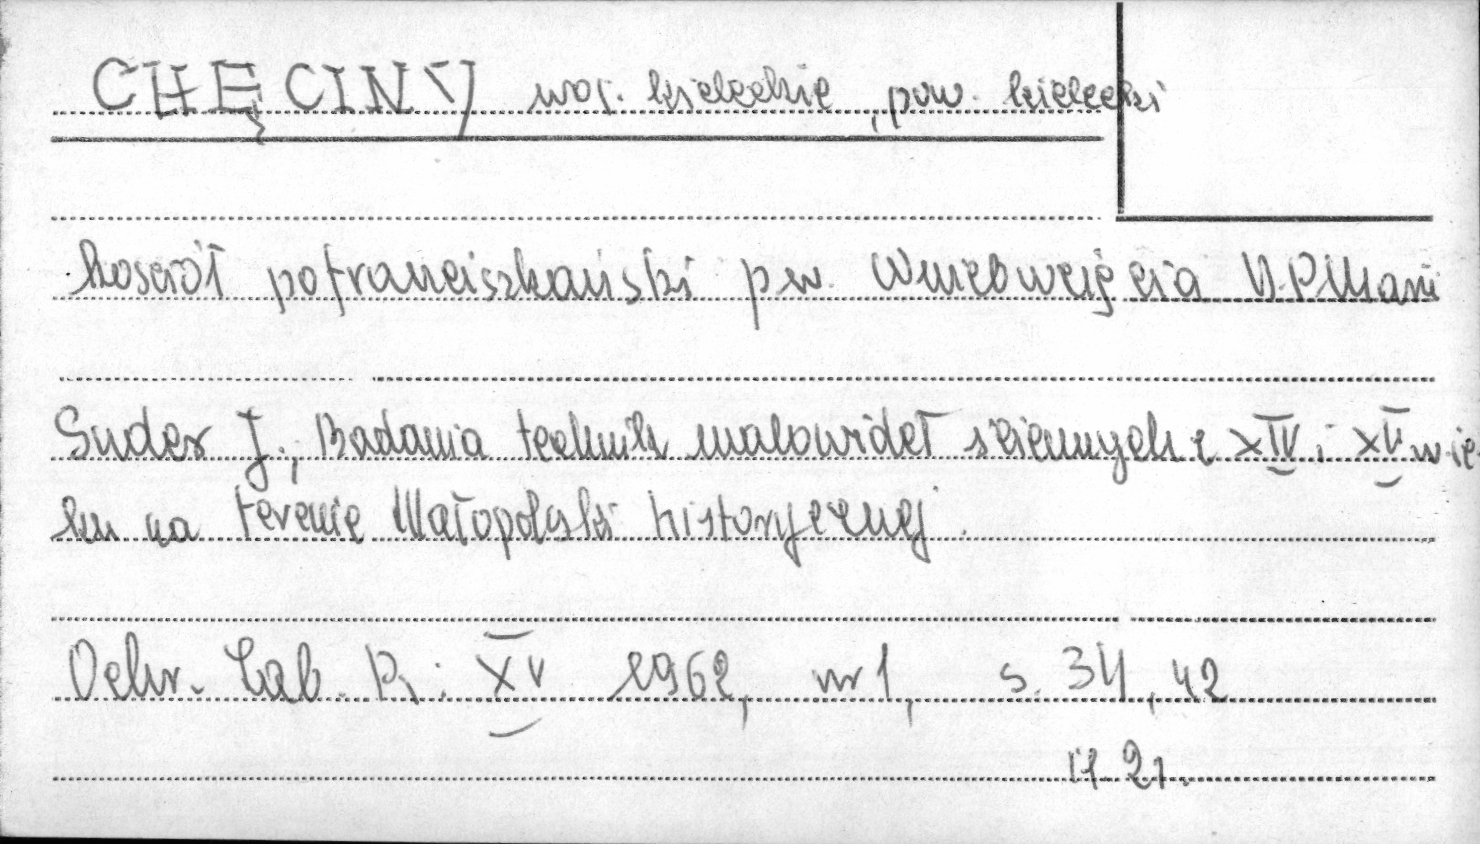 CHĘCINY woj. kieleckie, pow. kielecki
Kościół pofranciszkański p.w. Wniebowzięcia N.P.Marii
Suder J., Badania technik malowideł ściennych z XIV i XV wie-
ku na terenie Małopolski historycznej.
Ochr. Zab. R: XV 1962, nr 1, s. 34, 42
il. 21.